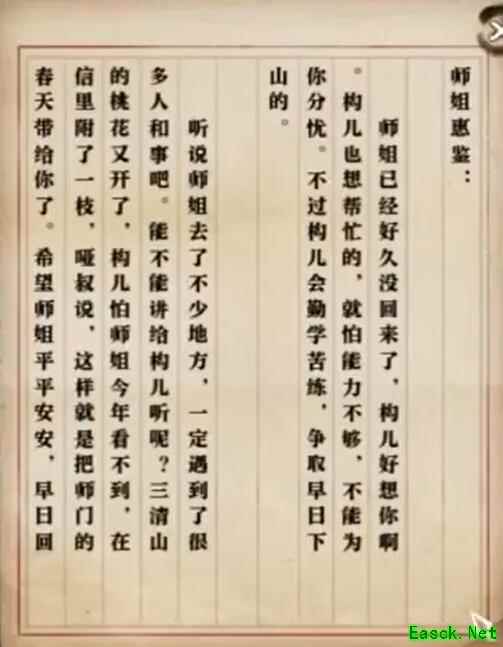 师姐惠鉴：
师姐已经好久没回来了，构儿好想你啊
。构儿也想帮忙的，就怕能力不够，不能为
你分忧。不过构儿会勤学苦练，争取早日下
山的。
听说师姐去了不少地方，一定遇到了很
多人和事吧。能不能讲给构儿听呢？三清山
的桃花又开了，构儿怕师姐今年看不到，在
信里附了一枝，哑叔说，这样就是把师门的
春天带给你了。希望师姐平平安安，早日回
Easck.Net